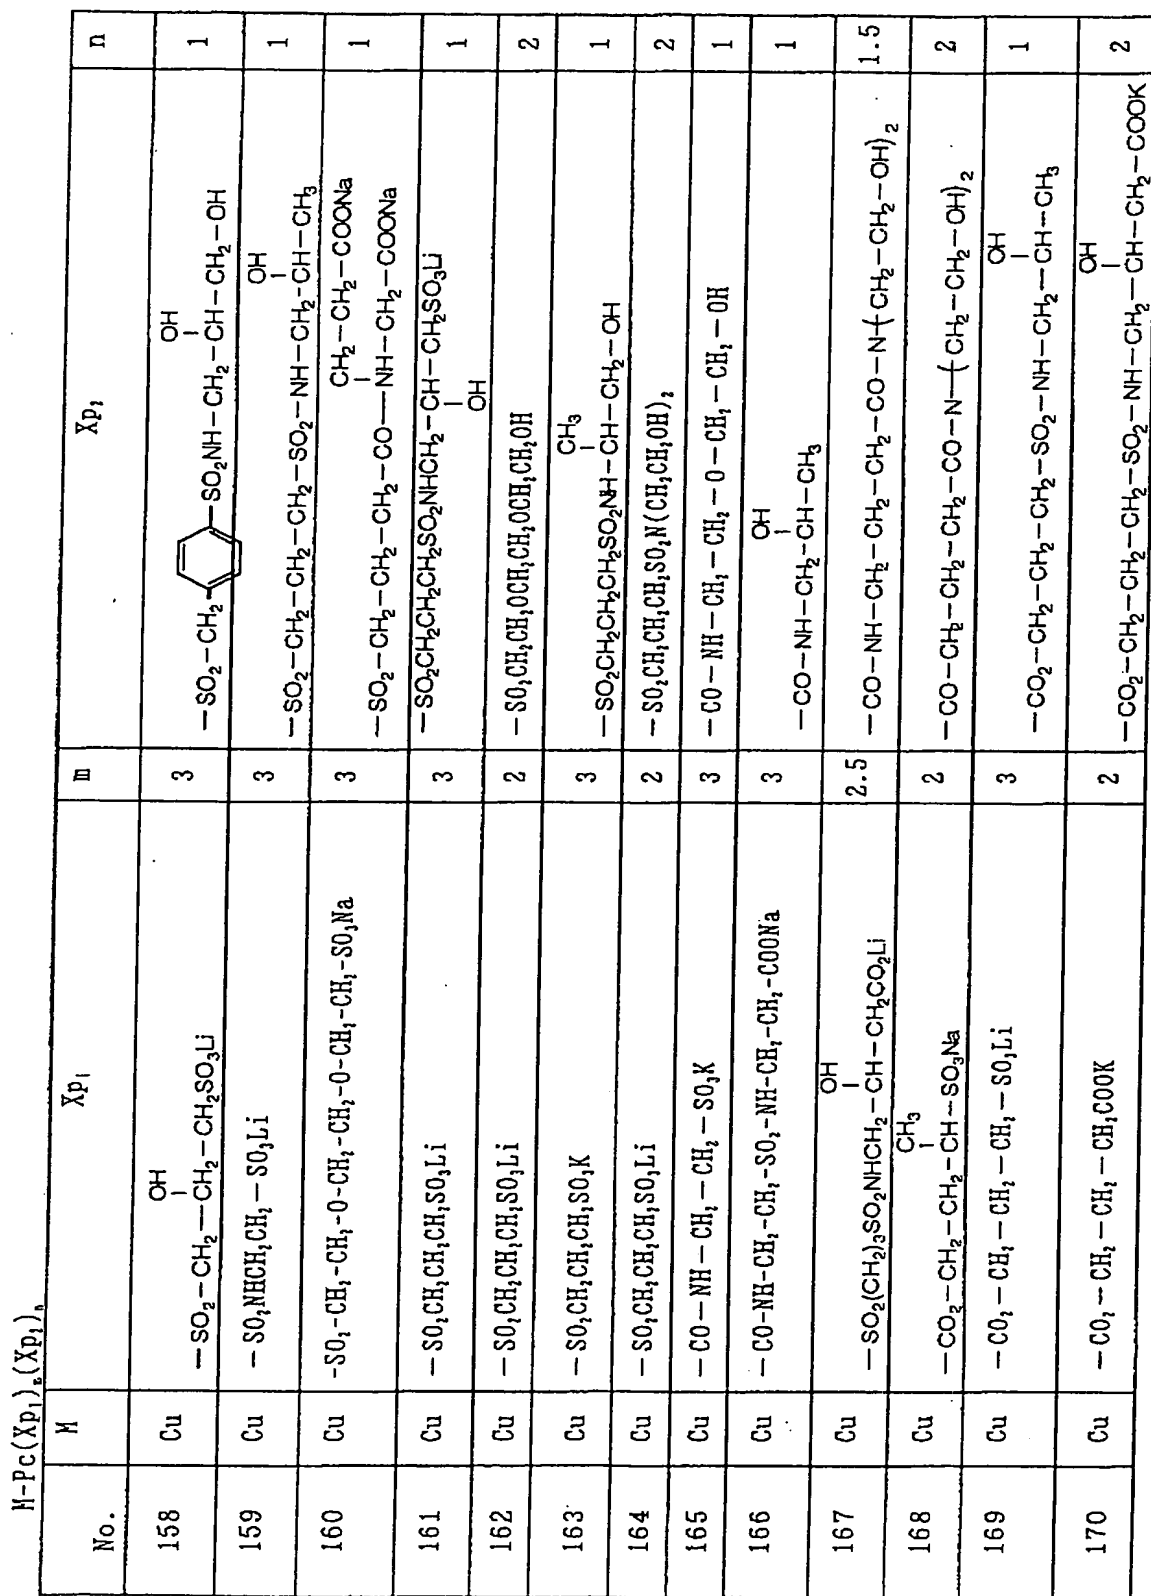 M-Pc(Xp₁)ₘ(Xp₂)ₙ
No. M Xp₁ m Xp₂ n
OH OH
158 Cu —SO₂—CH₂—CH₂—CH₂SO₃Li 3 —SO₂—CH₂— —SO₂NH—CH₂—CH—CH₂—OH 1
OH
159 Cu —SO₂NHCH₂CH₂—SO₃Li 3 —SO₂—CH₂—CH₂—CH₂—SO₂—NH—CH₂—CH—CH₃ 1
CH₂—CH₂—COONa
160 Cu -SO₂-CH₂-CH₂-O-CH₂-CH₂-O-CH₂-CH₂-SO₃Na 3 —SO₂—CH₂—CH₂—CH₂—CO—NH—CH₂—CH₂—COONa 1
161 Cu —SO₂CH₂CH₂CH₂SO₃Li 3 —SO₂CH₂CH₂CH₂SO₂NHCH₂—CH—CH₂SO₃Li 1
OH
162 Cu —SO₂CH₂CH₂CH₂SO₃Li 2 —SO₂CH₂CH₂OCH₂CH₂OCH₂CH₂OH 2
CH₃
163 Cu —SO₂CH₂CH₂CH₂SO₃K 3 —SO₂CH₂CH₂CH₂SO₂NH—CH—CH₂—OH 1
164 Cu —SO₂CH₂CH₂CH₂SO₃Li 2 —SO₂CH₂CH₂CH₂SO₂N(CH₂CH₂OH)₂ 2
165 Cu —CO—NH—CH₂—CH₂—SO₃K 3 —CO—NH—CH₂—CH₂—O—CH₂—CH₂—OH 1
OH
166 Cu —CO-NH-CH₂-CH₂-SO₂-NH-CH₂-CH₂-COONa 3 —CO—NH—CH₂—CH—CH₃ 1
OH
167 Cu —SO₂(CH₂)₃SO₂NHCH₂—CH—CH₂CO₂Li 2.5 —CO—NH—CH₂—CH₂—CH₂—CO—N—(CH₂—CH₂—OH)₂ 1.5
CH₃
168 Cu —CO₂—CH₂—CH₂—CH—SO₃Na 2 —CO—CH₂—CH₂—CH₂—CO—N—(CH₂—CH₂—OH)₂ 2
OH
169 Cu —CO₂—CH₂—CH₂—CH₂—SO₃Li 3 —CO₂—CH₂—CH₂—CH₂—SO₂—NH—CH₂—CH—CH₃ 1
OH
170 Cu —CO₂—CH₂—CH₂—CH₂COOK 2 —CO₂—CH₂—CH₂—CH₂—SO₂—NH—CH₂—CH—CH₂—COOK 2